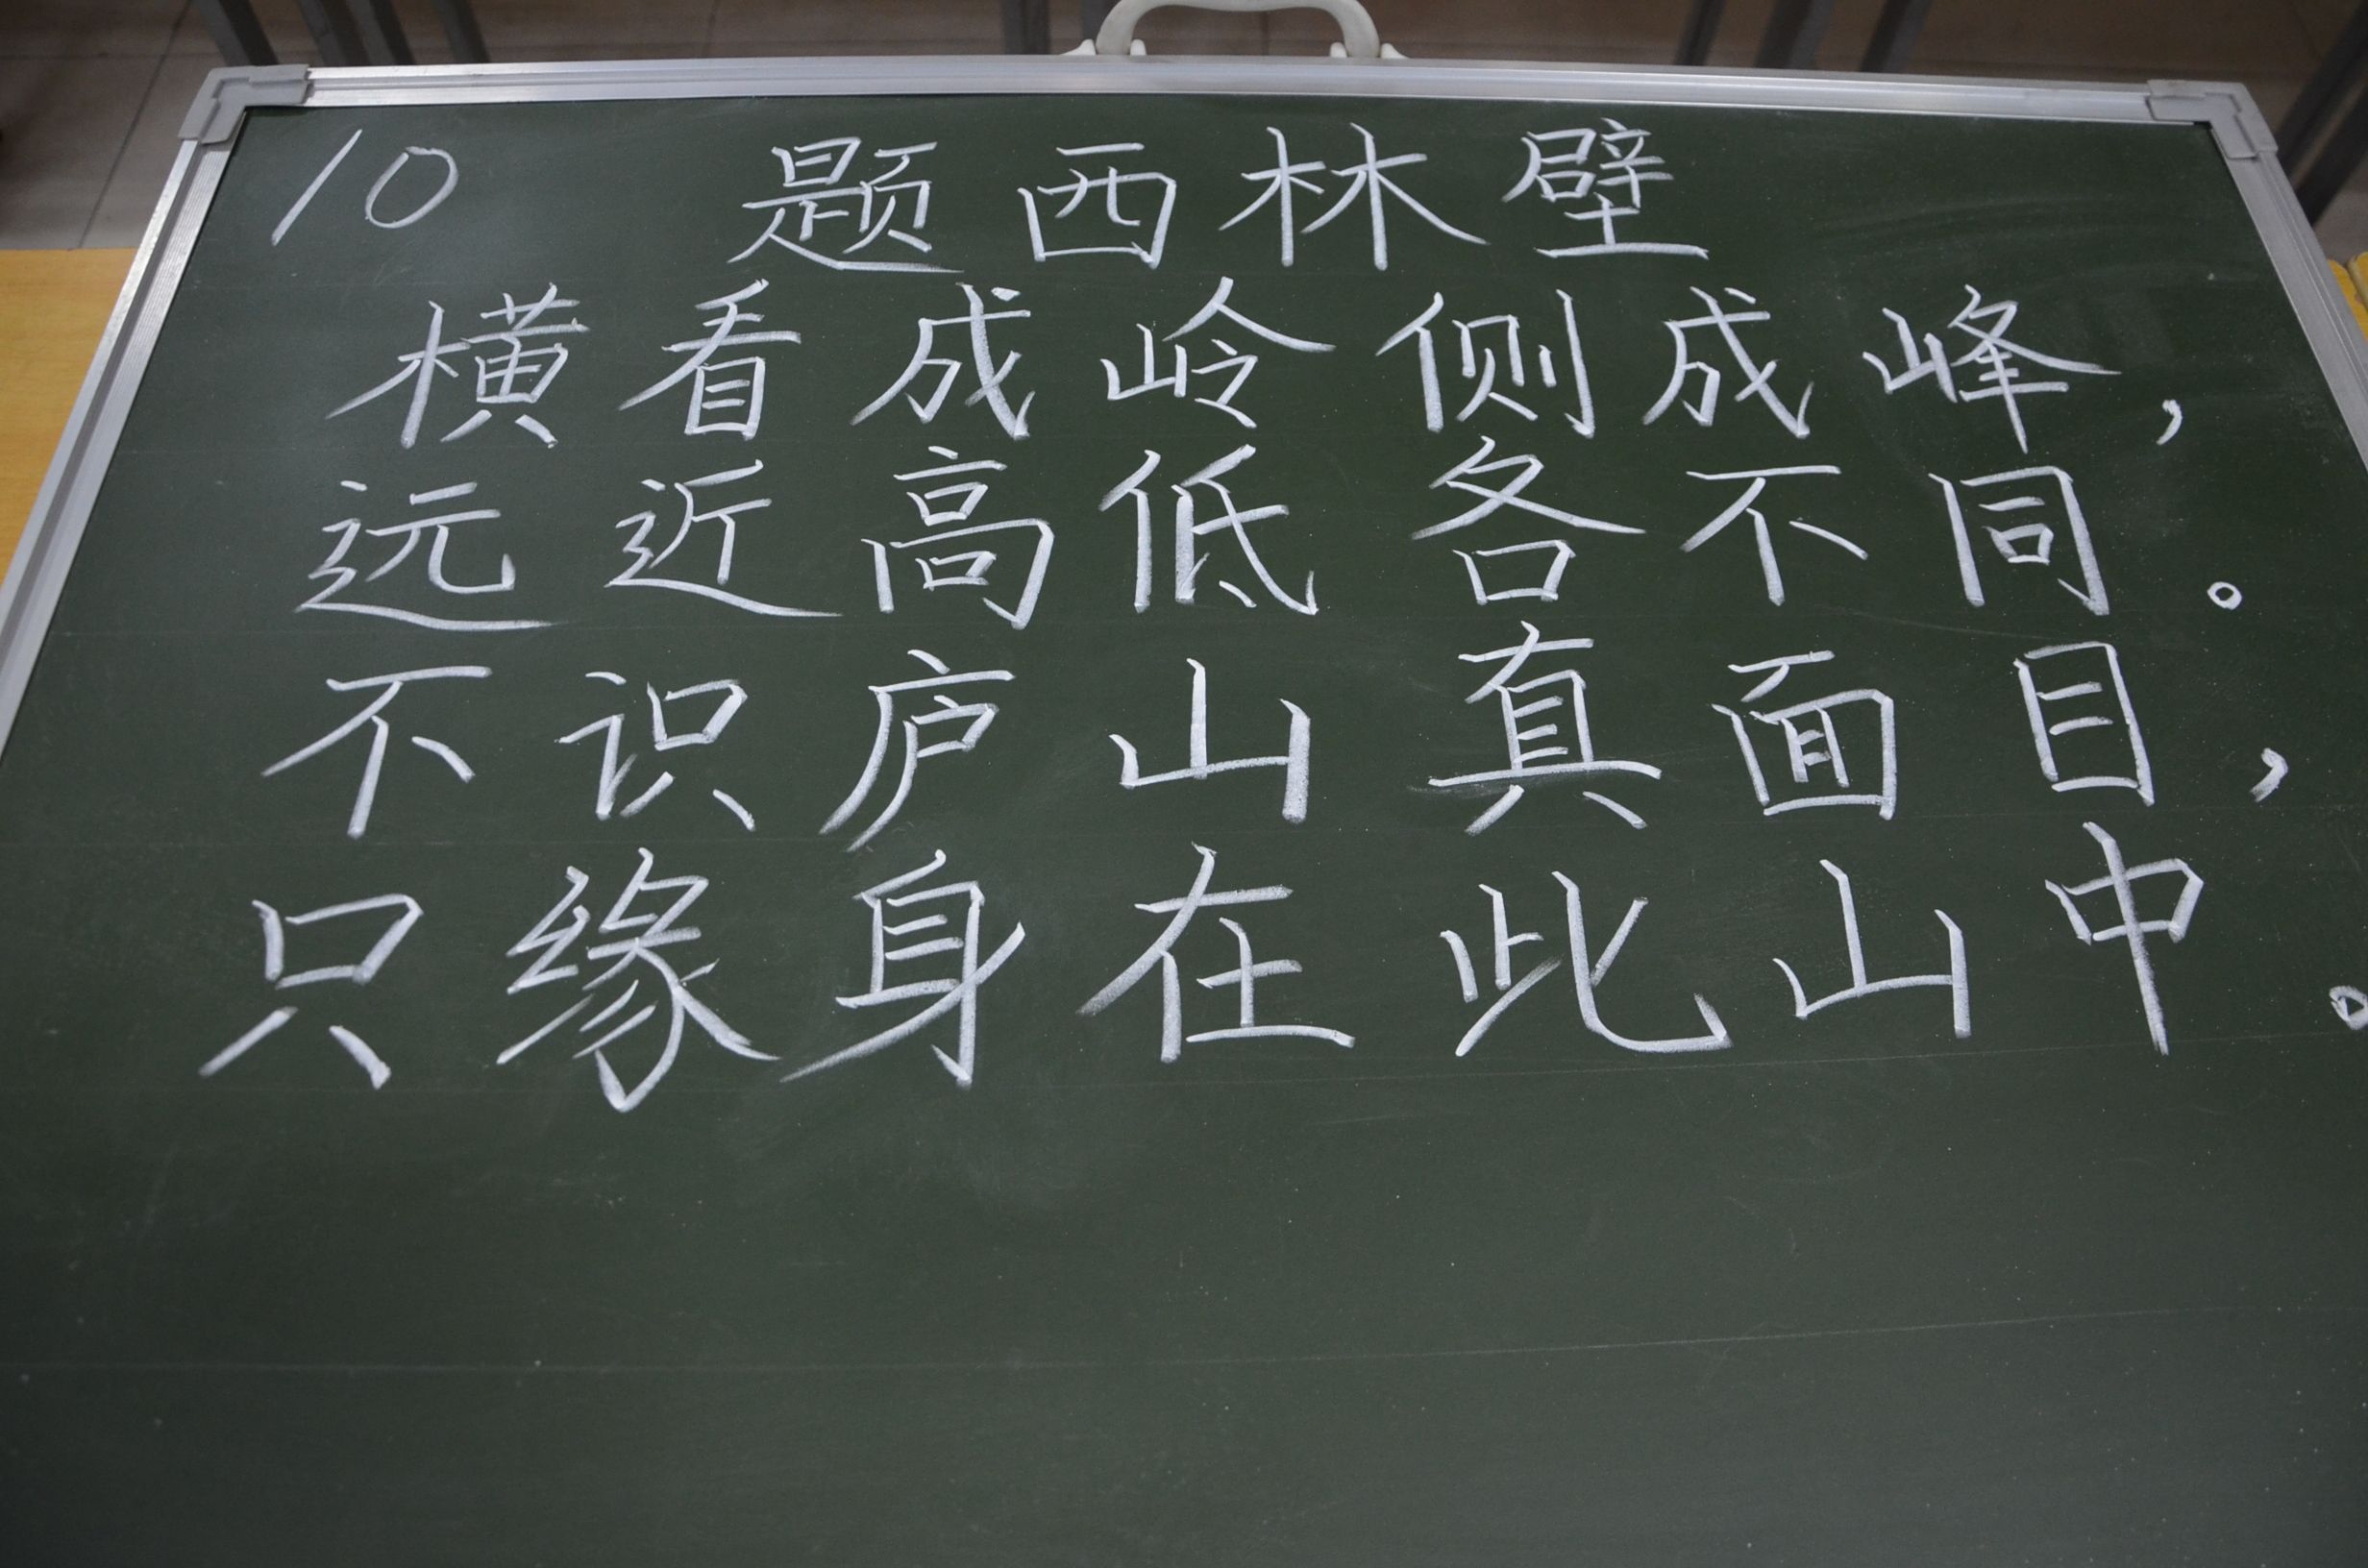 10 题西林壁
横看成岭侧成峰，
远近高低各不同。
不识庐山真面目，
只缘身在此山中。